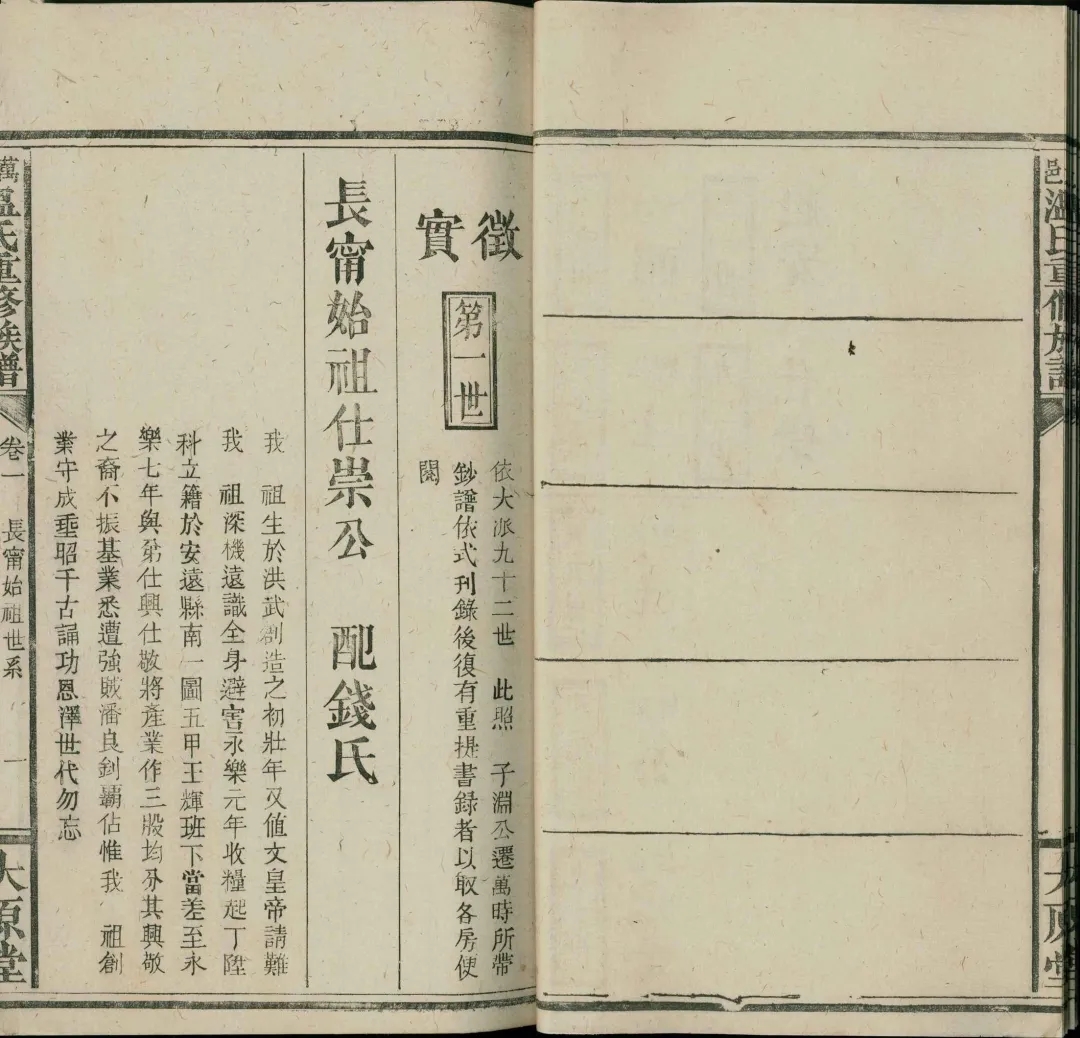 邑溫氏重修族譜
大原堂
徵實
第一世
依大派九十二世 此照 子淵公遷萬時所帶
鈔譜依式刊錄後復有重提書錄者以取各房便
閱
長甯始祖仕崇公 配錢氏
我 祖生於洪武創造之初壯年又值文皇帝請難
我 祖深機遠識全身避害永樂元年收糧起丁陞
科立籍於安遠縣南一圖五甲王輝班下當差至永
樂七年與弟仕興仕敬將產業作三股均分其興敬
之裔不振基業悉遭強賊潘良釗霸佔惟我 祖創
業守成垂昭千古誦功恩澤世代勿忘
萬
溫氏重修族譜
卷一 長甯始祖世系 一
大原堂